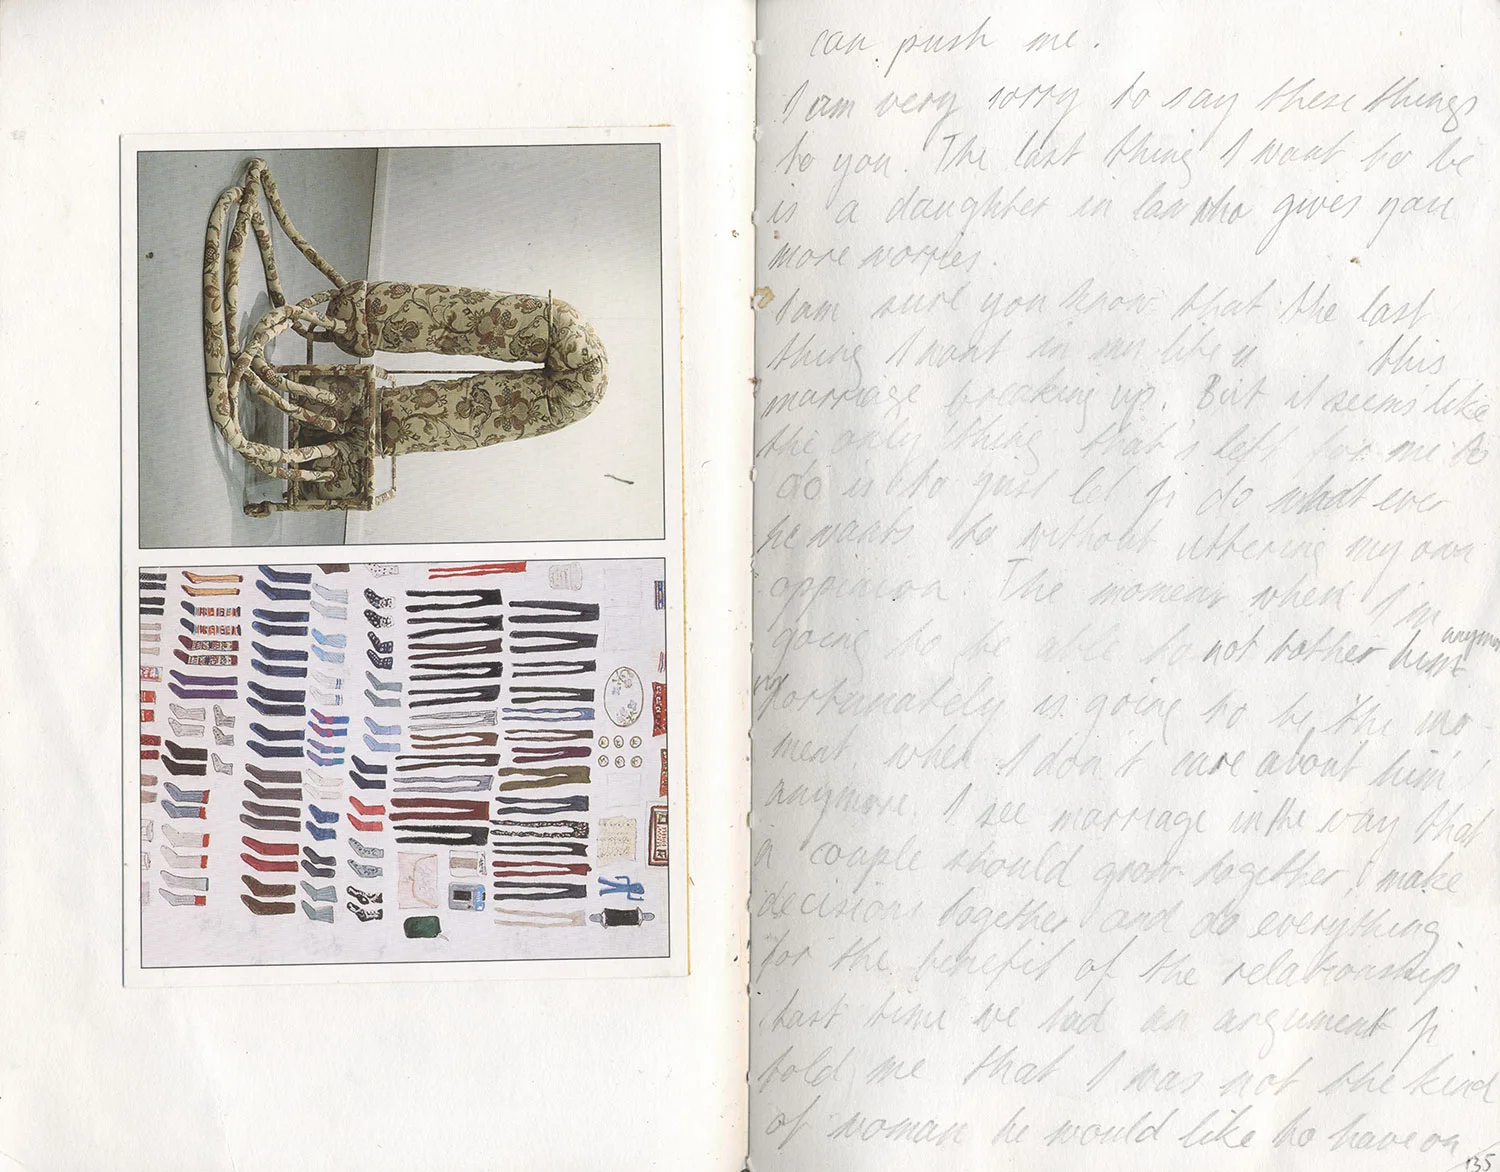 can push me.
I am very sorry to say these things
to you. The last thing I want to be
is a daughter in law who gives you
more worries.
I am sure you know that the last
thing I want in my life is this
marriage breaking up. But it seems like
the only thing that's left for me to
do is to just let Ji do what ever
he wants to without uttering my own
oppinion. The moment when I'm
going be to not bother him anymore
fortunately is going to be the mo-
ment when I don't care about him
anymore. I see marriage in the way that
a couple should grow together, make
decisions together and do everything
for the benefit of the relationship.
Last time we had an argument Ji
told me that I was not the kind
of woman he would like to have on
135